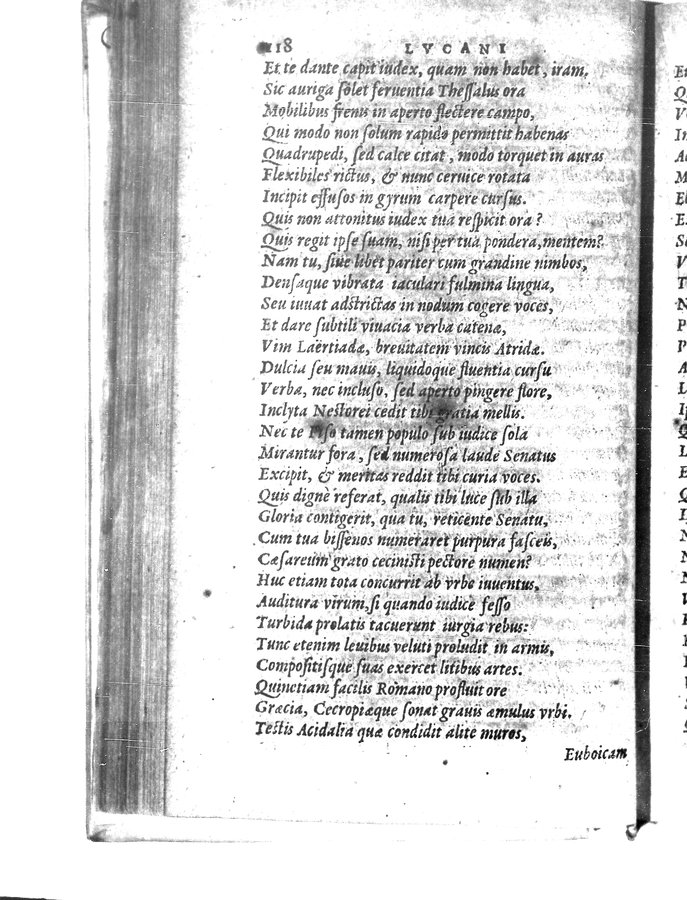 118 LVCANI
Et te dante capit iudex, quam non habet, iram.
Sic auriga ſolet feruentia Theſſalus ora
Mobilibus frenis in aperto flectere campo,
Qui modo non ſolum rapido permittit habenas
Quadrupedi, ſed calce citat, modo torquet in auras
Flexibiles rictus, & nunc ceruice rotata
Incipit effuſos in gyrum carpere curſus.
Quis non attonitus iudex tua reſpicit ora?
Quis regit ipſe ſuam, niſi per tua pondera, mentem?
Nam tu, ſiue libet pariter cum grandine nimbos,
Denſaque vibrata iaculari fulmina lingua,
Seu iuuat adſtrictas in nodum cogere voces,
Et dare ſubtili viuacia verba catenæ,
Vim Laërtiadæ, breuitatem vincis Atridæ.
Dulcia ſeu mauis, liquidoque fluentia curſu
Verba, nec incluſo, ſed aperto pingere flore,
Inclyta Neſtorei cedit tibi gratia mellis.
Nec te Piſo tamen populo ſub iudice ſola
Mirantur fora, ſed numeroſa laude Senatus
Excipit, & meritas reddit tibi curia voces.
Quis dignè referat, qualis tibi luce ſub illa
Gloria contigerit, qua tu, reticente Senatu,
Cum tua biſſenos numeraret purpura faſceis,
Cæſareum grato ceciniſti pectore numen?
Huc etiam tota concurrit ab vrbe iuuentus,
Auditura virum, ſi quando iudice feſſo
Turbida prolatis tacuerunt iurgia rebus:
Tunc etenim leuibus veluti proludit in armis,
Compoſitiſque ſuas exercet litibus artes.
Quinetiam facilis Romano profluit ore
Græcia, Cecropiæque ſonat grauis æmulus vrbi.
Teſtis Acidalia quæ condidit alite muros,
Euboicam